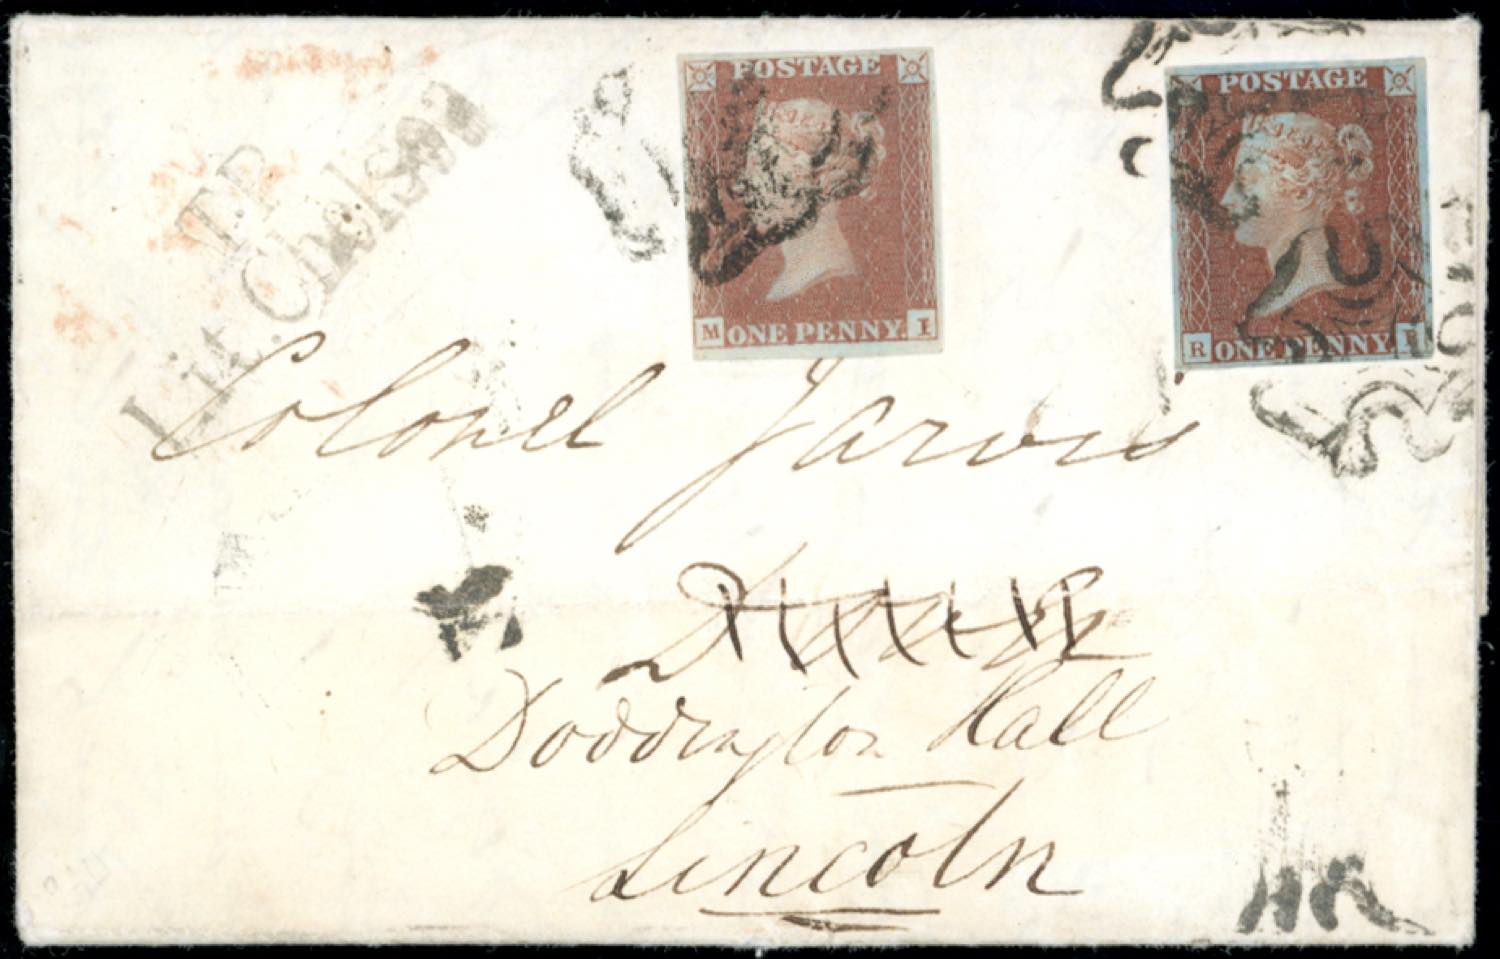 T.P
Lit. Chelsea
POSTAGE
M ONE PENNY. I
POSTAGE
R ONE PENNY.
Colonel Jarvis
Doddington Hall
Lincoln